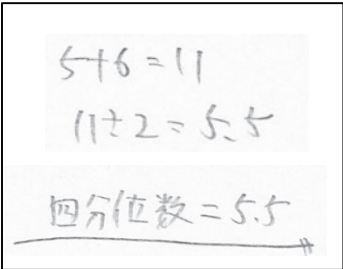 5+6=11
11÷2=5.5
四分位数=5.5